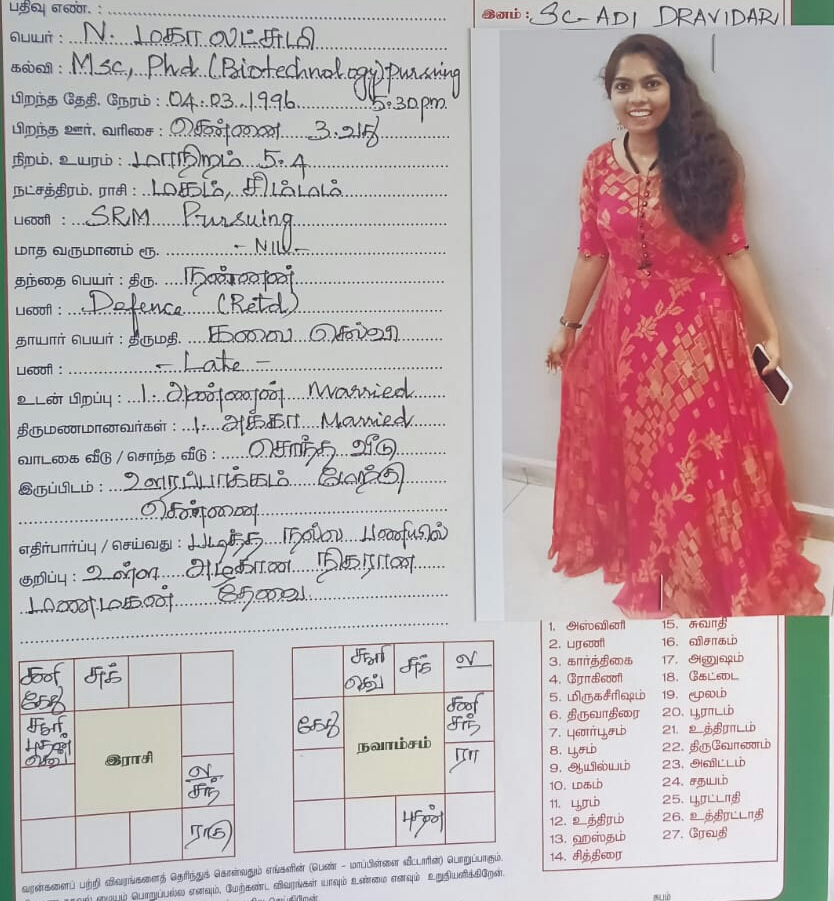 பதிவு எண். :
இனம் : SC-ADI DRAVIDAR
பெயர் : N. மகாலட்சுமி
கல்வி : Msc, Phd (Biotechnology) pursving
பிறந்த தேதி. நேரம் : 04.03.1996 5:30pm.
பிறந்த ஊர். வரிசை : சென்னை 3.வது
நிறம். உயரம் : மாநிறம் 5.4
நட்சத்திரம். ராசி : மகம், சிம்மம்
பணி : SRM Pursuing
மாத வருமானம் ரூ. - NIL -
தந்தை பெயர் : திரு. நன்னன்
பணி : Defence (Retd)
தாயார் பெயர் : திருமதி. கலை செல்வி
பணி : - Late -
உடன் பிறப்பு : 1. அண்ணன் Married
திருமணமானவர்கள் : 1. அக்கா Married
வாடகை வீடு / சொந்த வீடு : சொந்த வீடு
இருப்பிடம் : ஊரப்பாக்கம்
சென்னை
எதிர்பார்ப்பு / செய்வது : படித்த நல்ல பணியில்
குறிப்பு : உள்ள அழகான நிகரான
மணமகன் தேவை
சனி கேது சுக்
சூரி புதன் செவ்
இராசி
ல சந்
ராகு
சூரி செவ் சுக் ல
கேது சனி சந்
நவாம்சம் ரா
புதன்
1. அஸ்வினி 15. சுவாதி
2. பரணி 16. விசாகம்
3. கார்த்திகை 17. அனுஷம்
4. ரோகிணி 18. கேட்டை
5. மிருகசீரிஷம் 19. மூலம்
6. திருவாதிரை 20. பூராடம்
7. புனர்பூசம் 21. உத்திராடம்
8. பூசம் 22. திருவோணம்
9. ஆயில்யம் 23. அவிட்டம்
10. மகம் 24. சதயம்
11. பூரம் 25. பூரட்டாதி
12. உத்திரம் 26. உத்திரட்டாதி
13. ஹஸ்தம் 27. ரேவதி
14. சித்திரை
வரன்களைப் பற்றி விவரங்களைத் தெரிந்துக் கொள்வதும் எங்களின் (பெண் - மாப்பிள்ளை வீட்டாரின்) பொறுப்பாகும்.
மையம் பொறுப்பல்ல எனவும், மேற்கண்ட விவரங்கள் யாவும் உண்மை எனவும் உறுதியளிக்கிறேன்.